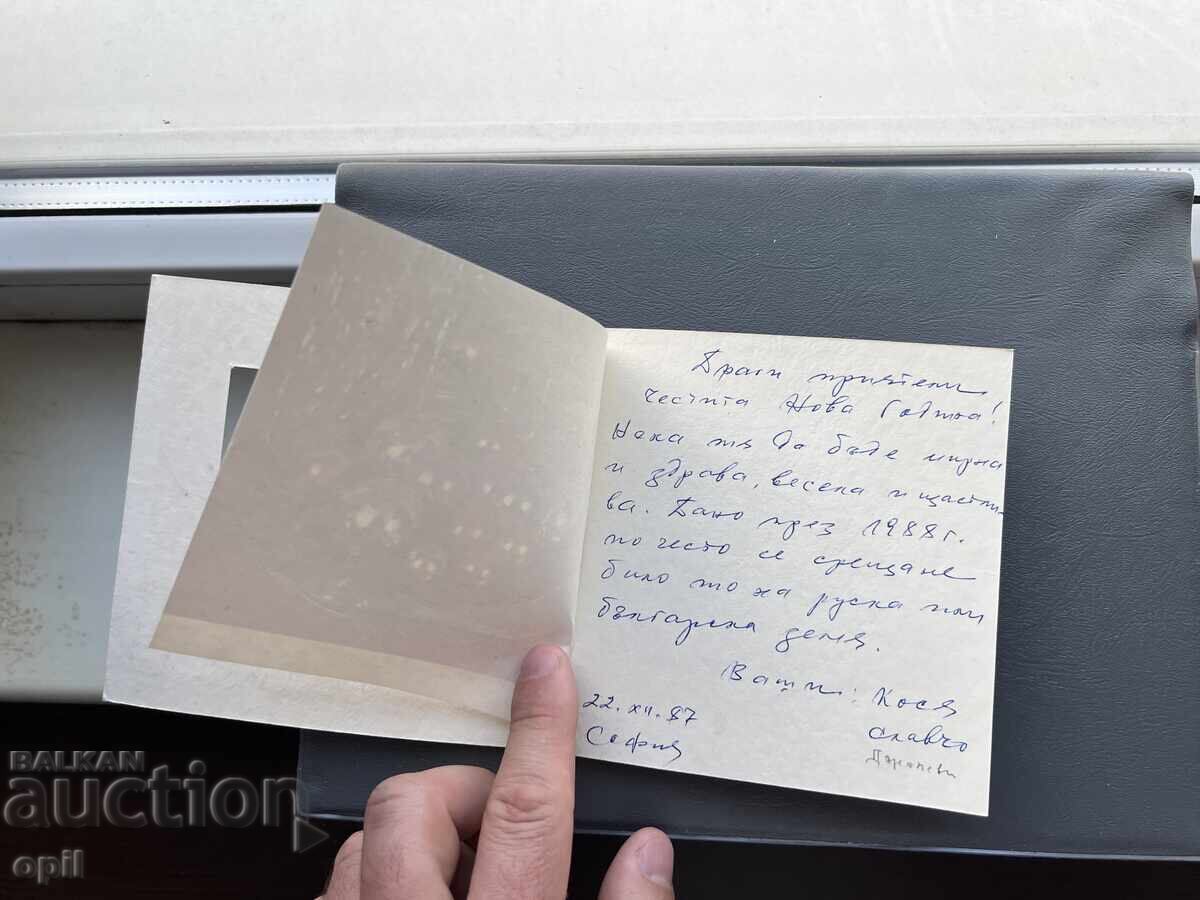 Драги приятели
честита Нова Година!
Нека тя да бъде мирна
и здрава, весела и щастли-
ва. Дано през 1988 г.
по често се срещаме
било то на руска или
българска земя.
Ваши: Кося
Славчо
22.XII.87
София
BALKAN
auction
opil